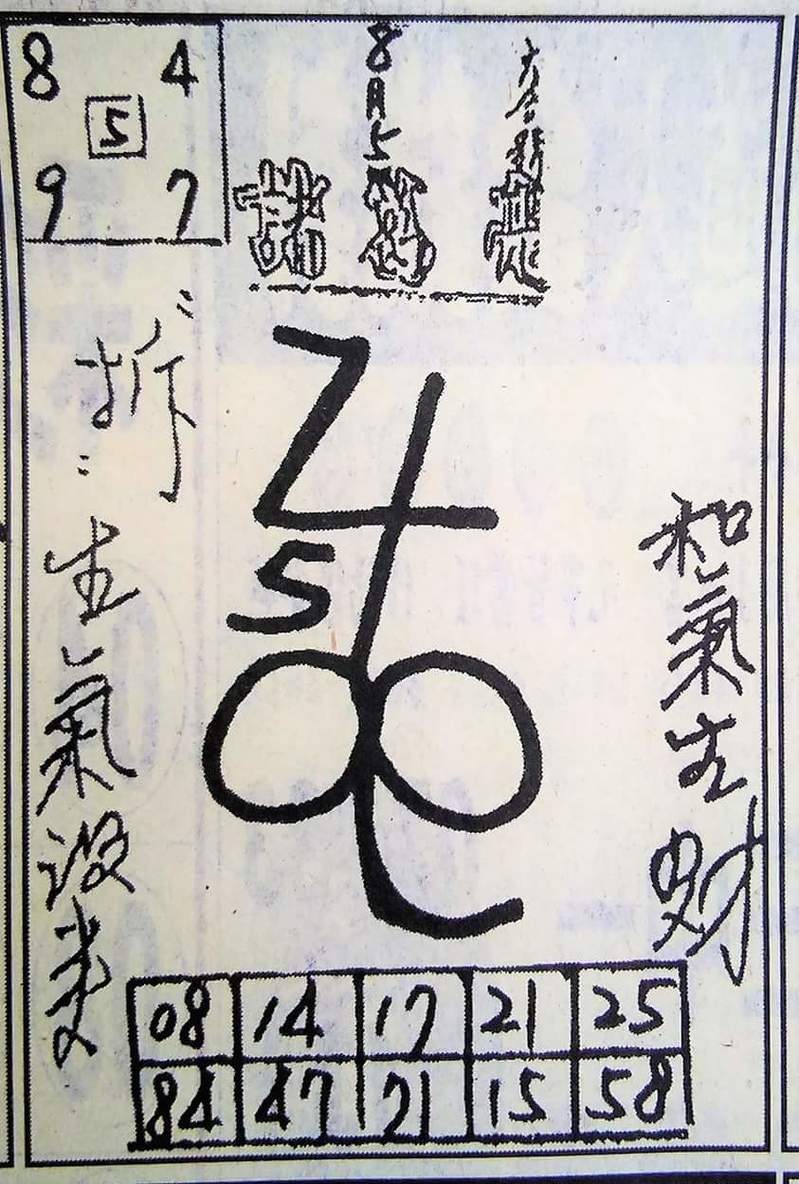 8 4
5
9 7
8月5
諸葛
拆:
生氣沒
和氣生財
5
08 14 17 21 25
84 47 71 15 58